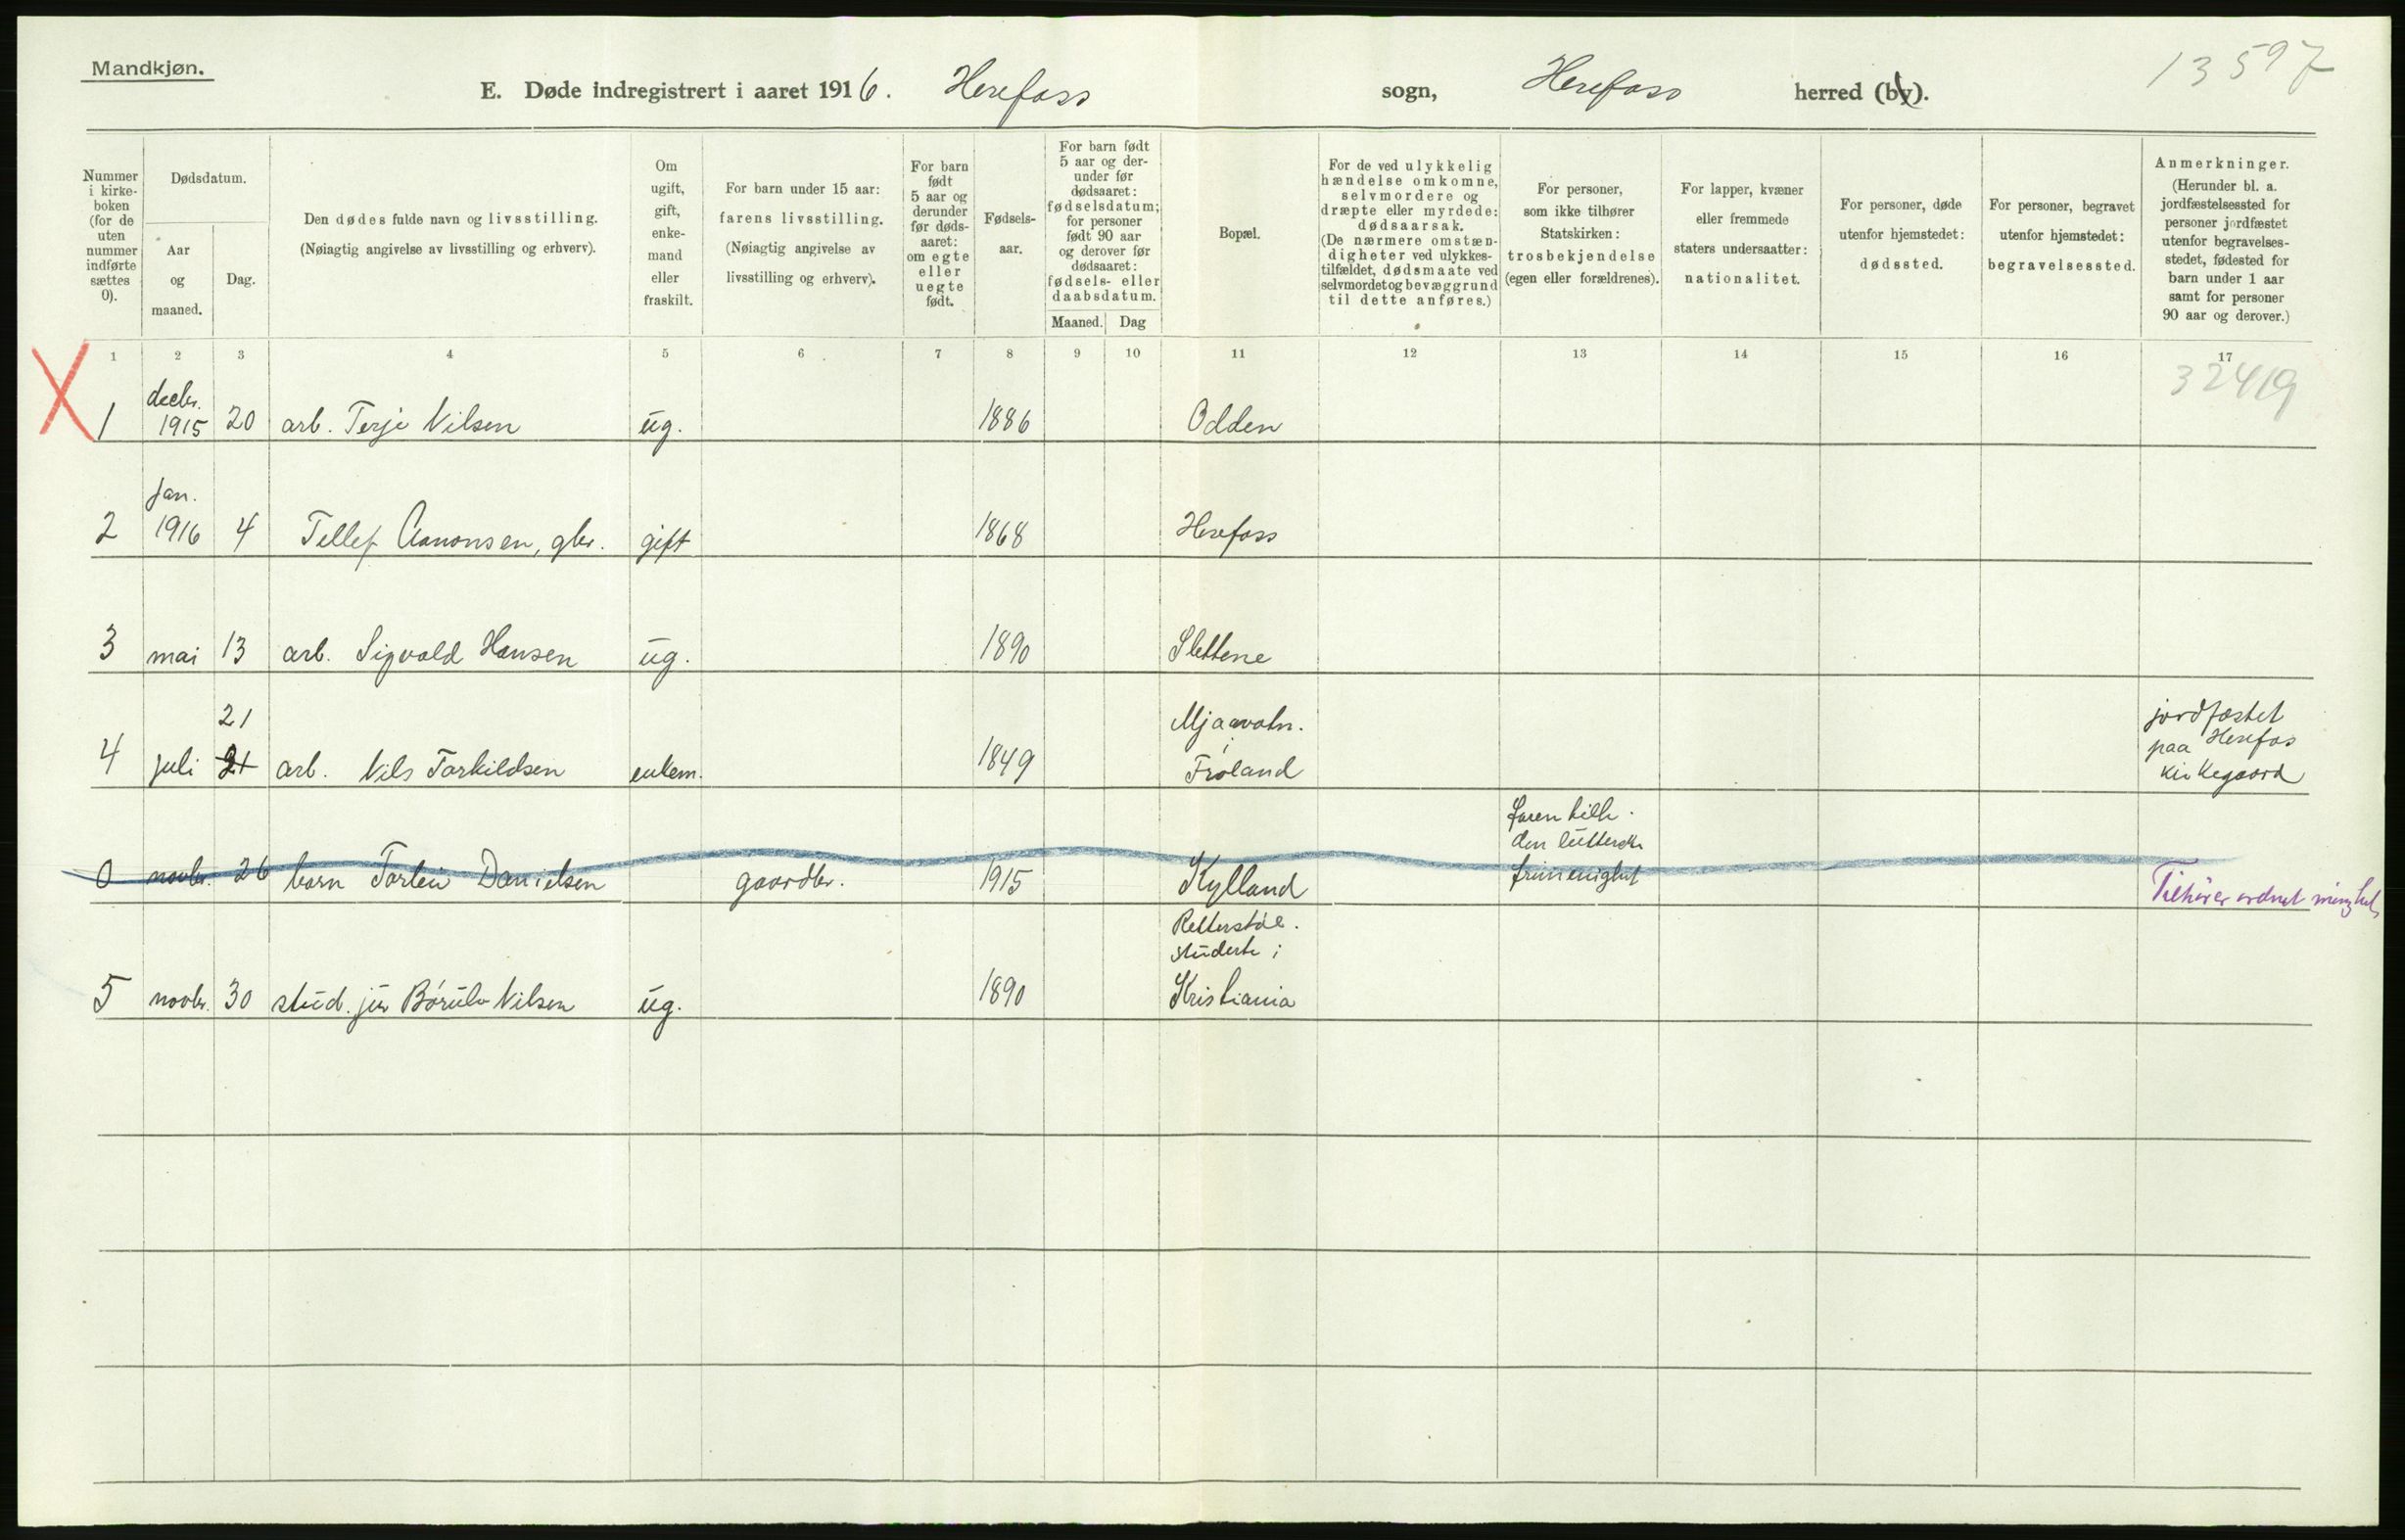 Mandkjøn.
13597
E. Døde indregistrert i aaret 1916. Herefoss sogn, Herefoss herred (by).
Nummer
i kirke-
boken
(for de
uten
nummer
indførte
sættes
0).
Dødsdatum.
Aar
og
maaned.
Dag.
Den dødes fulde navn og livsstilling.
(Nøiagtig angivelse av livsstilling og erhverv).
Om
ugift,
gift,
enke-
mand
eller
fraskilt.
For barn under 15 aar:
farens livsstilling.
(Nøiagtig angivelse av
livsstilling og erhverv).
For barn
født
5 aar og
derunder
før døds-
aaret:
om egte
eller
uegte
født.
Fødsels-
aar.
For barn født
5 aar og der-
under før
dødsaaret:
fødselsdatum;
for personer
født 90 aar
og derover før
dødsaaret:
fødsels- eller
daabsdatum.
Maaned. Dag
Bopæl.
For de ved ulykkelig
hændelse omkomne,
selvmordere og
dræpte eller myrdede:
dødsaarsak.
(De nærmere omstæn-
digheter ved ulykkes-
tilfældet, dødsmaate ved
selvmordet og bevæggrund
til dette anføres.)
For personer,
som ikke tilhører
Statskirken:
trosbekjendelse
(egen eller forældrenes).
For lapper, kvæner
eller fremmede
staters undersaatter:
nationalitet.
For personer, døde
utenfor hjemstedet:
dødssted.
For personer, begravet
utenfor hjemstedet:
begravelsessted.
Anmerkninger.
(Herunder bl. a.
jordfæstelsessted for
personer jordfæstet
utenfor begravelses-
stedet, fødested for
barn under 1 aar
samt for personer
90 aar og derover.)
1 2 3 4 5 6 7 8 9 10 11 12 13 14 15 16 17
32419
decbr.
1 1915 20 arb. Terje Nilsen ug. 1886 Odden
Jan.
2 1916 4 Tellef Aanonsen, gbr. gift 1868 Herefoss
3 mai 13 arb. Sigvald Hansen ug. 1890 Slettene
21 Mjaavatn. jordfæstet
i paa Herefos
4 juli 21 arb. Nils Torkildsen enkem. 1849 Froland kirkegaard
faren tilh.
den lutherske
0 novbr. 26 barn Torleiv Danielsen gaardbr. 1915 Kylland frimenighet Tilhører ordnet menighet
Retterstöl.
studerte i
5 novbr. 30 stud. jur Börulv Nilsen ug. 1890 Kristiania